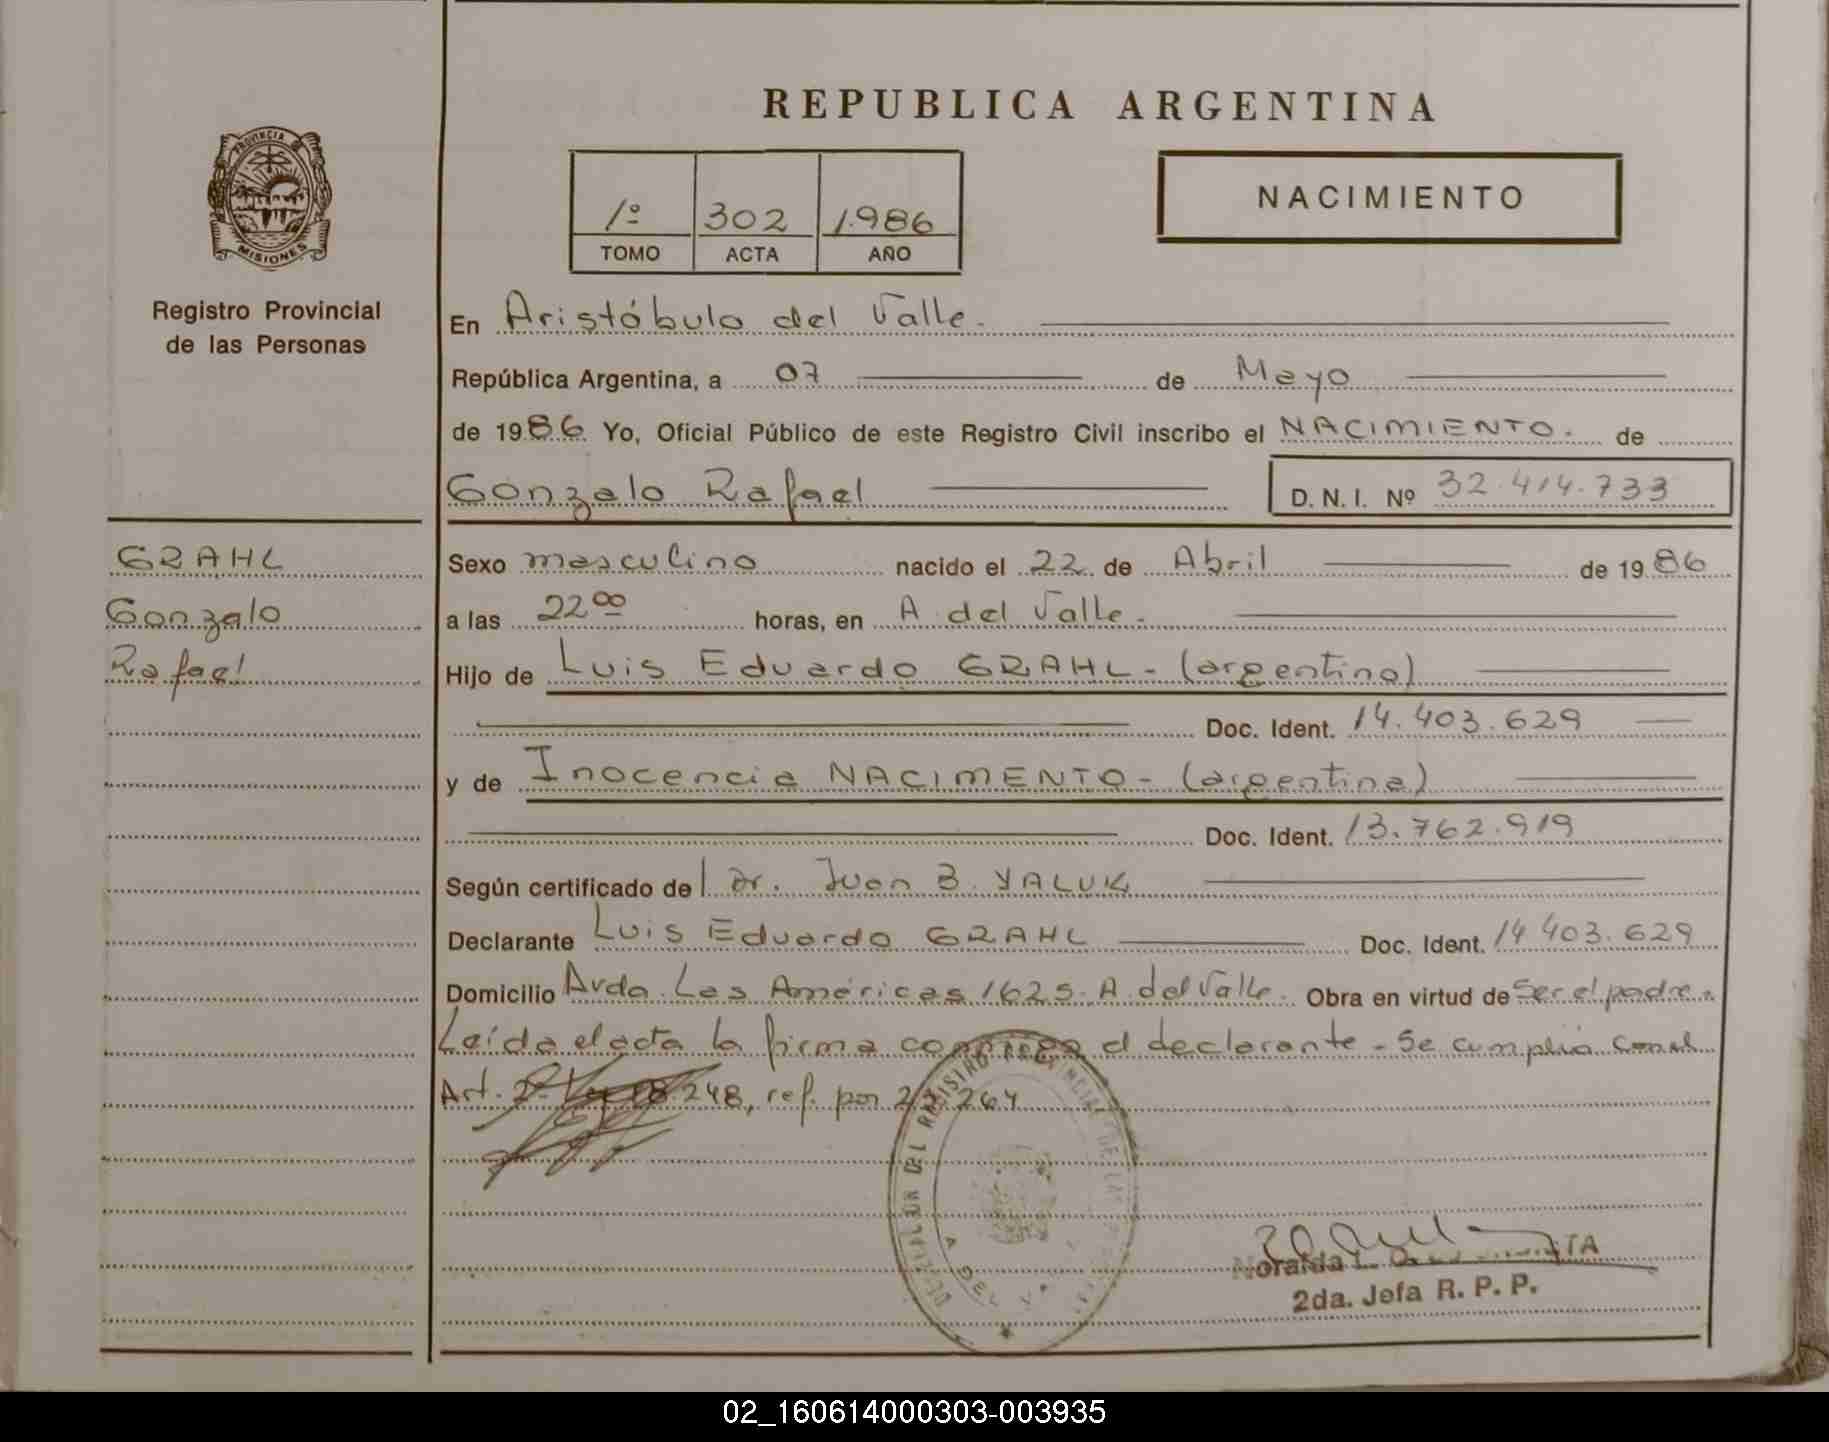 REPUBLICA ARGENTINA
PROVINCIA
MISIONES
Registro Provincial
de las Personas
1º 302 1.986
TOMO ACTA AÑO
NACIMIENTO
En Aristóbulo del Valle.
República Argentina, a 07 de Mayo
de 1986 Yo, Oficial Público de este Registro Civil inscribo el NACIMIENTO. de
Gonzalo Rafael D. N. I. Nº 32.414.733
GRAHL
Gonzalo
Rafael
Sexo masculino nacido el 22 de Abril de 1986
a las 22 00 horas, en A. del Valle.
Hijo de Luis Eduardo GRAHL - (argentino)
Doc. Ident. 14.403.629
y de Inocencia NACIMENTO - (argentina)
Doc. Ident. 13.762.919
Según certificado de Dr. Juan B. YALUK
Declarante Luis Eduardo GRAHL Doc. Ident. 14 403.629
Domicilio Avda. Las Américas 1625. A. del Valle. Obra en virtud de Ser el padre.
Leída el acta la firma conmigo el declarante - Se cumplió con el
Art. 2º Ley 18.248, ref. por 22 264
DEL REGISTRO PROVINCIAL DE LAS
A. DEL
Noraida
2da. Jefa R. P. P.
02_160614000303-003935